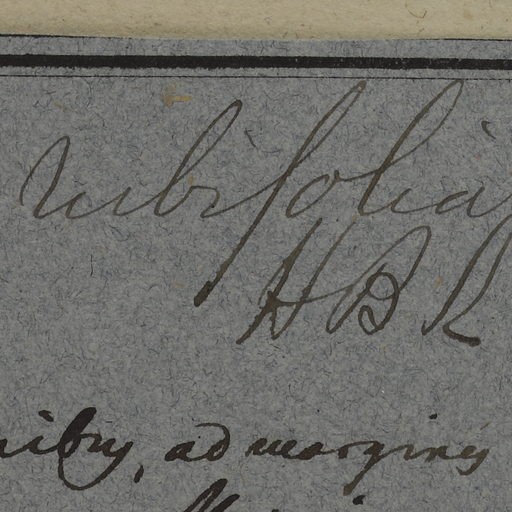 rubifolia
HBK
ad margines